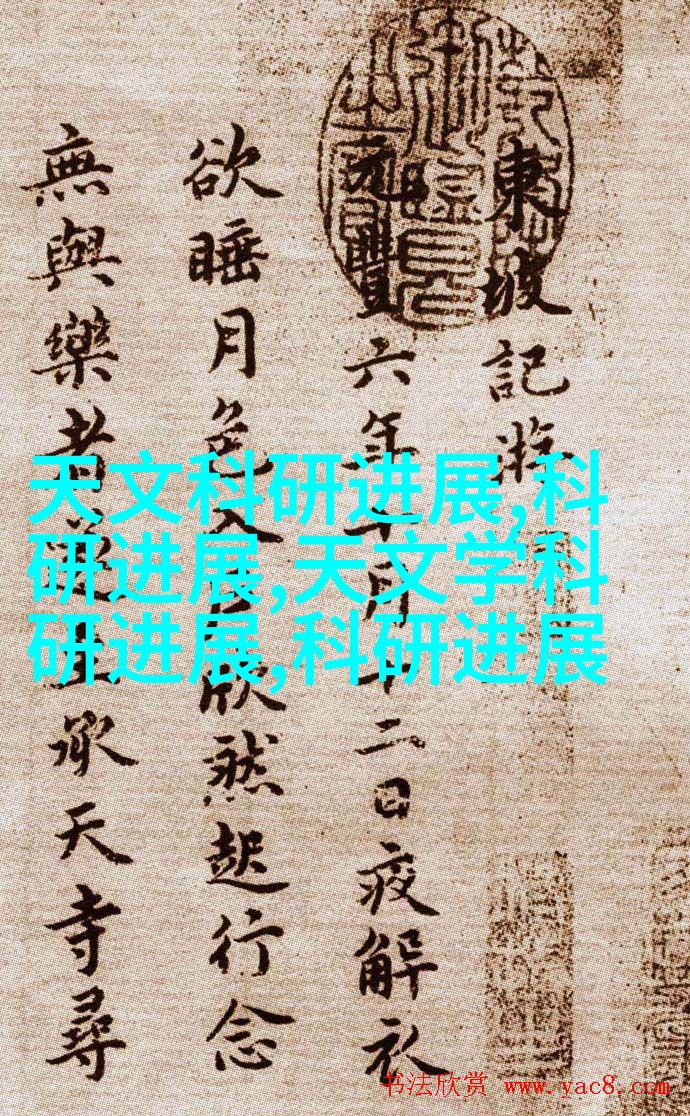 東坡記游
元豐六年十月十二日疫解衣
欲睡月色入户欣然起行念
無與樂者遂至承天寺尋
天文科研进展,科
研进展,天文学科
研进展,科研进展
书法欣赏 www.yac8.com